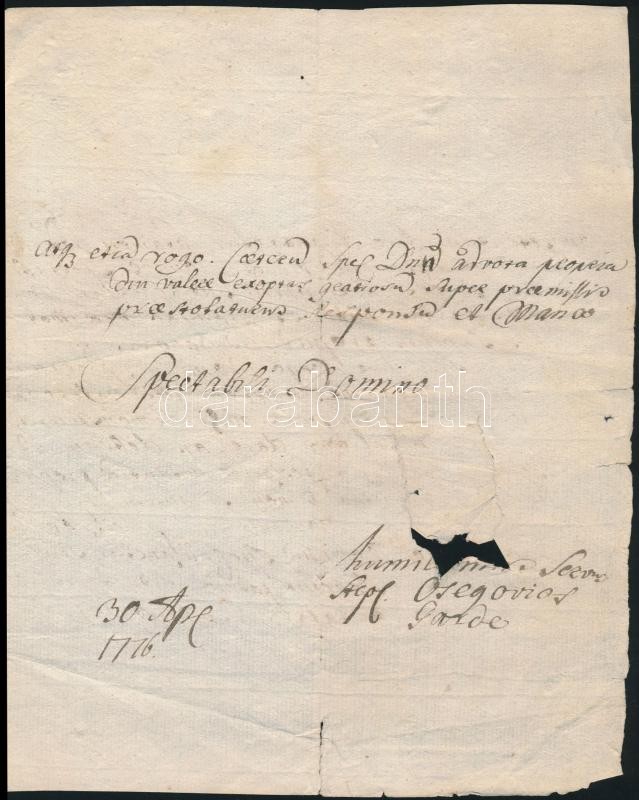 Atq etiã rogo. Cæterũ Spel Dnũ ad vota prospera
diu valere exoptans gratiosũ, super præmissis
præstolaturus Responsũ et Maneo
Spectabili Domino
darabanth
humillimus Servus
Step Osegovics
Garde
30 Apl
1776.